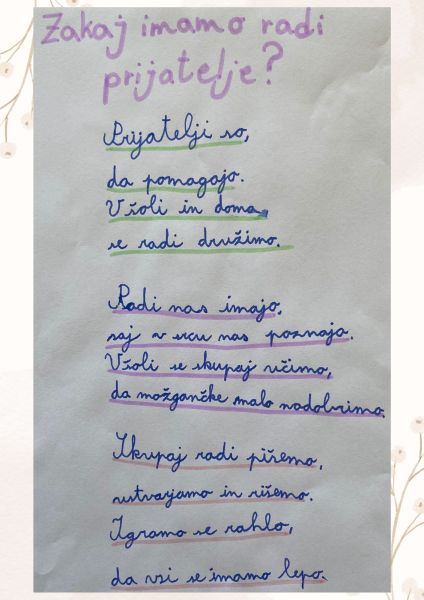 Zakaj imamo radi
prijatelje?
Prijatelji so,
da pomagajo.
V šoli in doma,
se radi družimo.
Radi nas imajo,
saj v srcu nas poznajo.
V šoli se skupaj učimo,
da možgančke malo nadobrimo.
Skupaj radi pišemo,
ustvarjamo in rišemo.
Igramo se rahlo,
da vsi se imamo lepo.